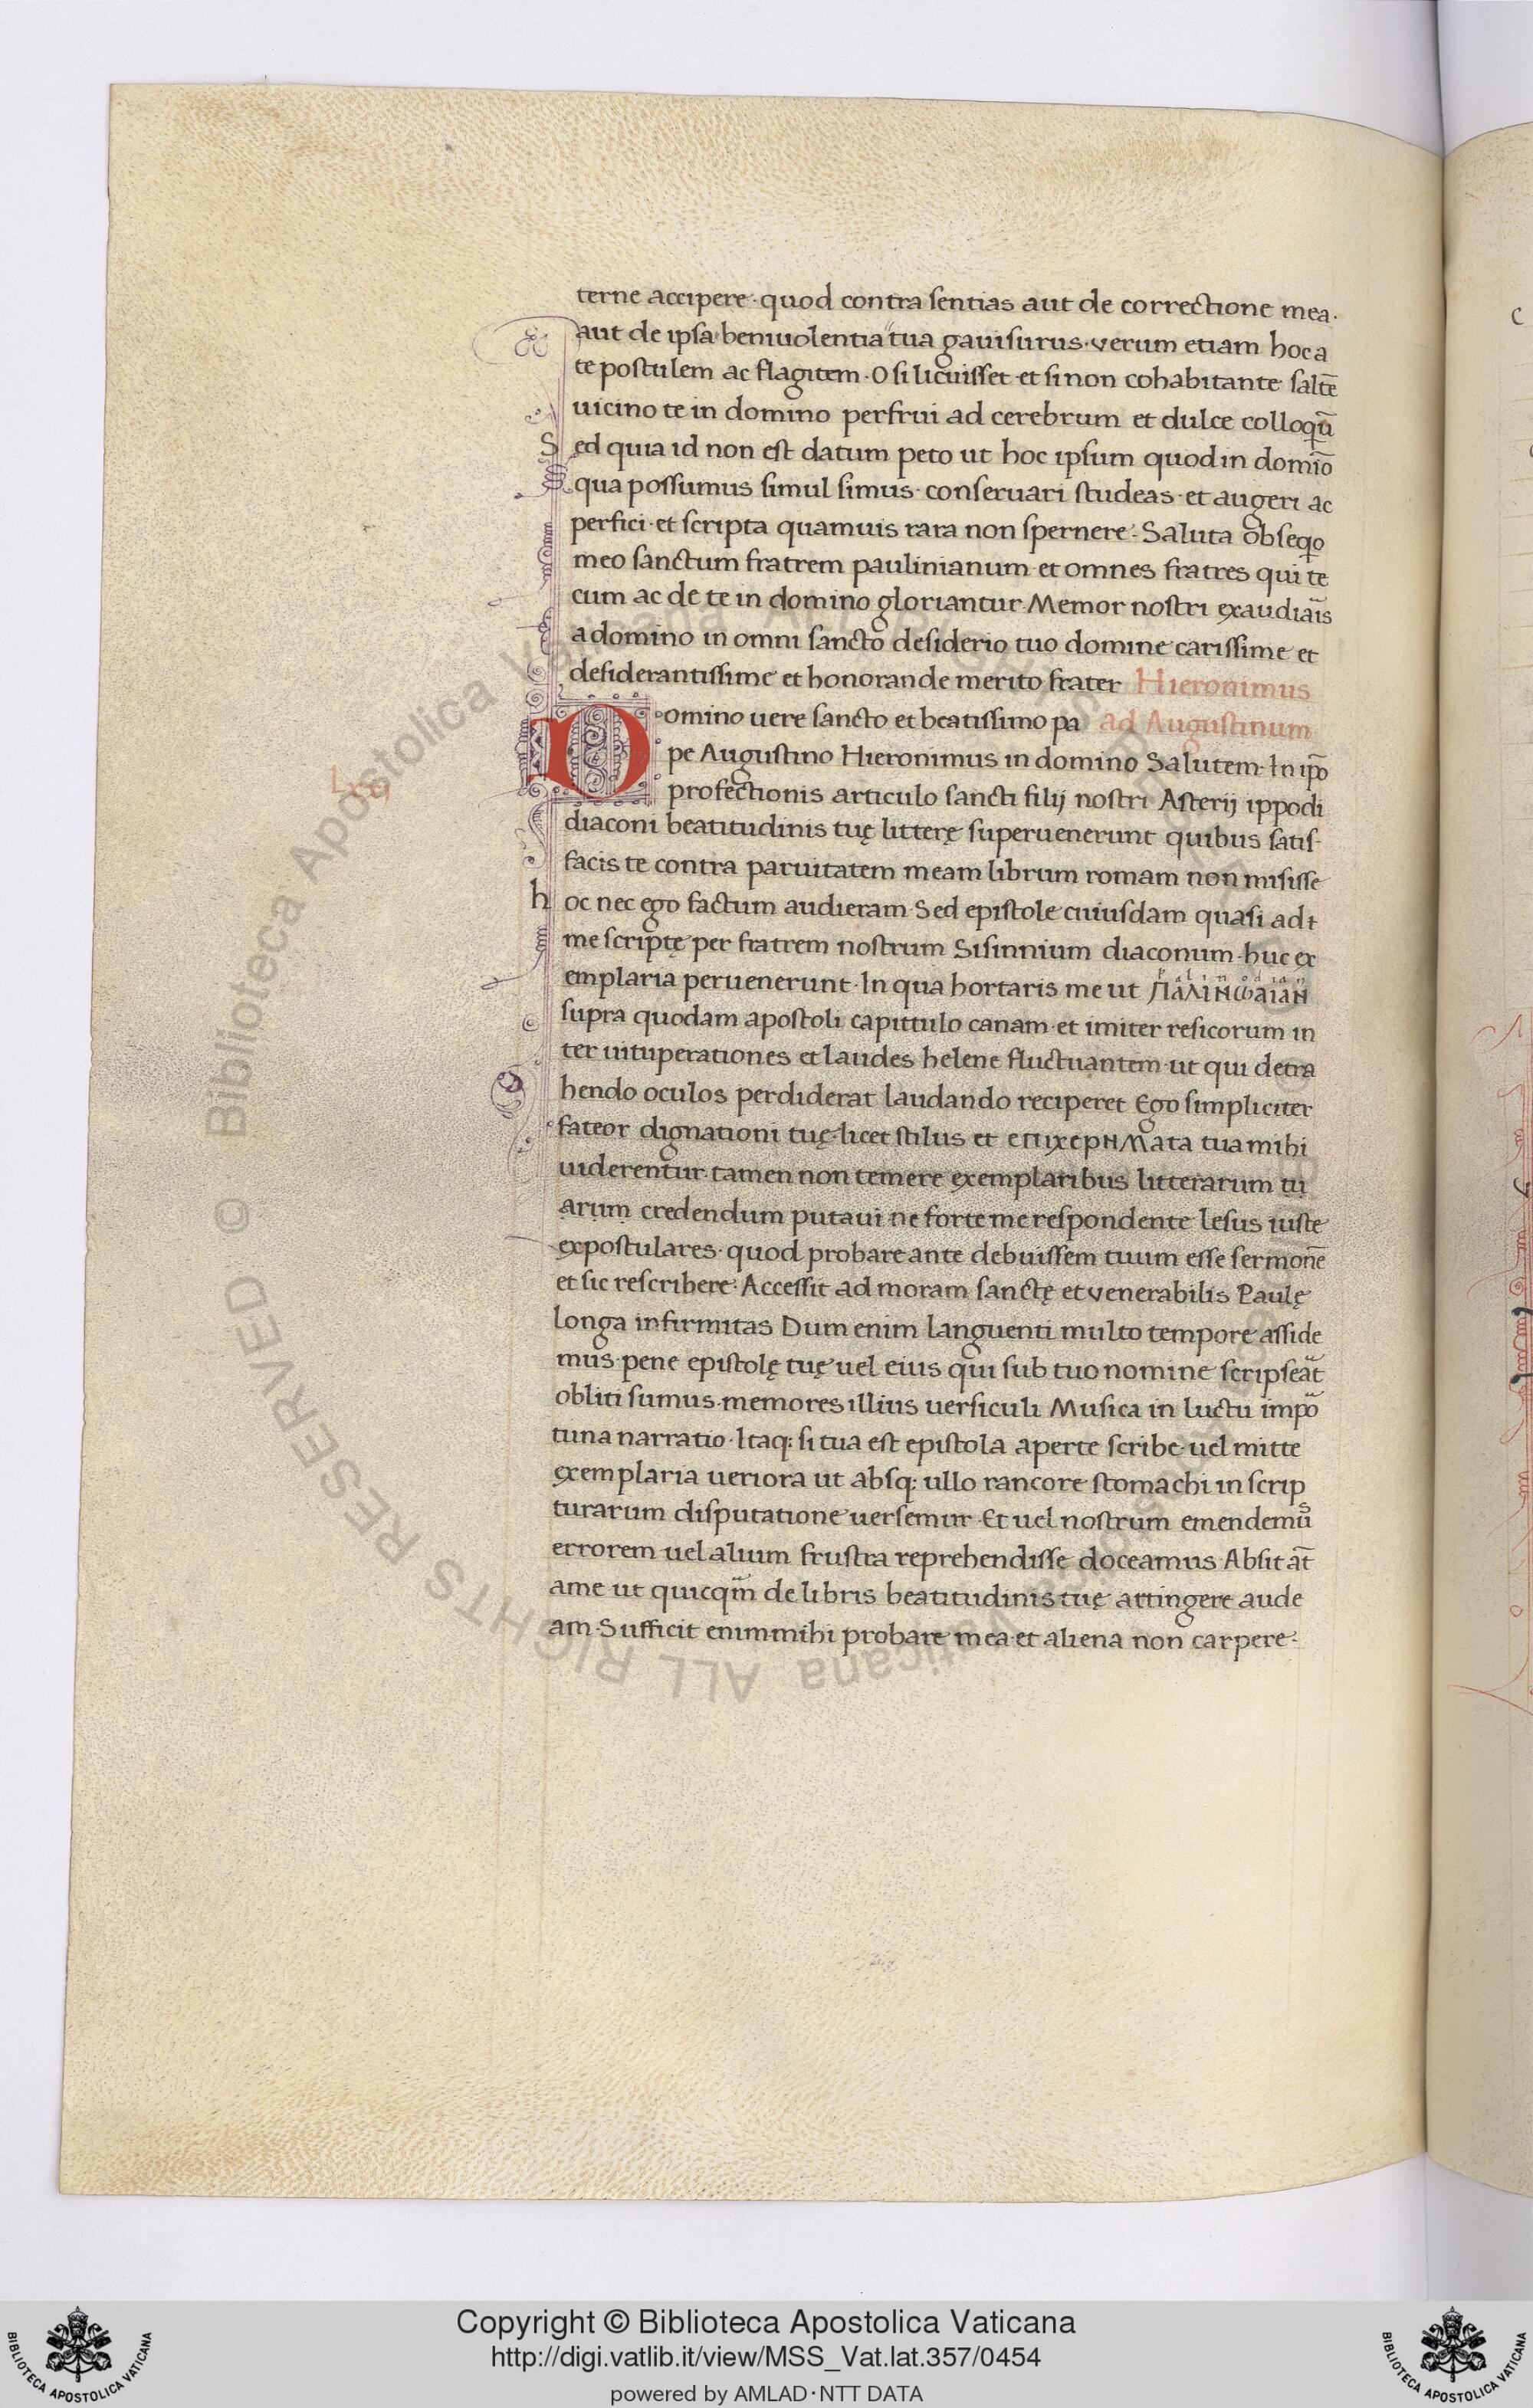 terne accipere· quod contra sentias aut de correctione mea·
aut de ipsa beniuolentia tua gauisurus· verum etiam hoc a
te postulem ac flagitem· O si licuisset et si non cohabitante saltē
uicino te in domino perfrui ad cerebrum et dulce colloqū
Sed quia id non est datum peto ut hoc ipsum quod in domīo
qua possumus simul simus· conseruari studeas· et augeri ac
perfici· et scripta quamuis rara non spernere· Saluta obseqo
meo sanctum fratrem paulinianum et omnes fratres qui te
cum ac de te in domino gloriantur Memor nostri exaudiais
a domino in omni sancto desiderio tuo domine carissime et
desiderantissime et honorande merito frater Hieronimus
Domino uere sancto et beatissimo pa ad Augustinum
pe Augustino Hieronimus in domino Salutem· In ip̄o
Lxij
profectionis articulo sancti filij nostri Asterij ippodi
diaconi beatitudinis tuę litterę superuenerunt quibus satis
facis te contra paruitatem meam librum romam non misisse
hoc nec ego factum audieram· Sed epistole cuiusdam quasi ad
me scriptę per fratrem nostrum Sisinnium diaconum· huc ex
emplaria peruenerunt· In qua hortaris me ut παλινωαιαν
supra quodam apostoli capittulo canam· et imiter resicorum in
ter uituperationes et laudes helene fluctuantem· ut qui detra
hendo oculos perdiderat laudando reciperet Ego simpliciter
fateor dignationi tuę· licet stilus et επιχερηματα tua mihi
uiderentur· tamen non temere exemplaribus litterarum tu
arum credendum putaui ne forte me respondente lesus iuste
expostulares· quod probare ante debuissem tuum esse sermonē
et sic rescribere· Accessit ad moram sanctę et venerabilis Paulę
longa infirmitas Dum enim languenti multo tempore asside
mus· pene epistolę tuę uel eius qui sub tuo nomine scripseat
obliti sumus· memores illius uersiculi Musica in luctu impo
tuna narratio· Itaq: si tua est epistola aperte scribe uel mitte
exemplaria ueriora ut absq: ullo rancore stomachi in scrip
turarum disputatione uersemur· Et uel nostrum emendemus
errorem uel alium frustra reprehendisse doceamus Absit āt
a me ut quicqm de libris beatitudinis tuę attingere aude
am· Sufficit enim mihi probare mea et aliena non carpere·
Copyright © Biblioteca Apostolica Vaticana
http://digi.vatlib.it/view/MSS_Vat.lat.357/0454
powered by AMLAD·NTT DATA
BIBLIOTECA APOSTOLICA VATICANA
BIBLIOTECA APOSTOLICA VATICANA
© Biblioteca Apostolica Vaticana ALL RIGHTS RESERVED